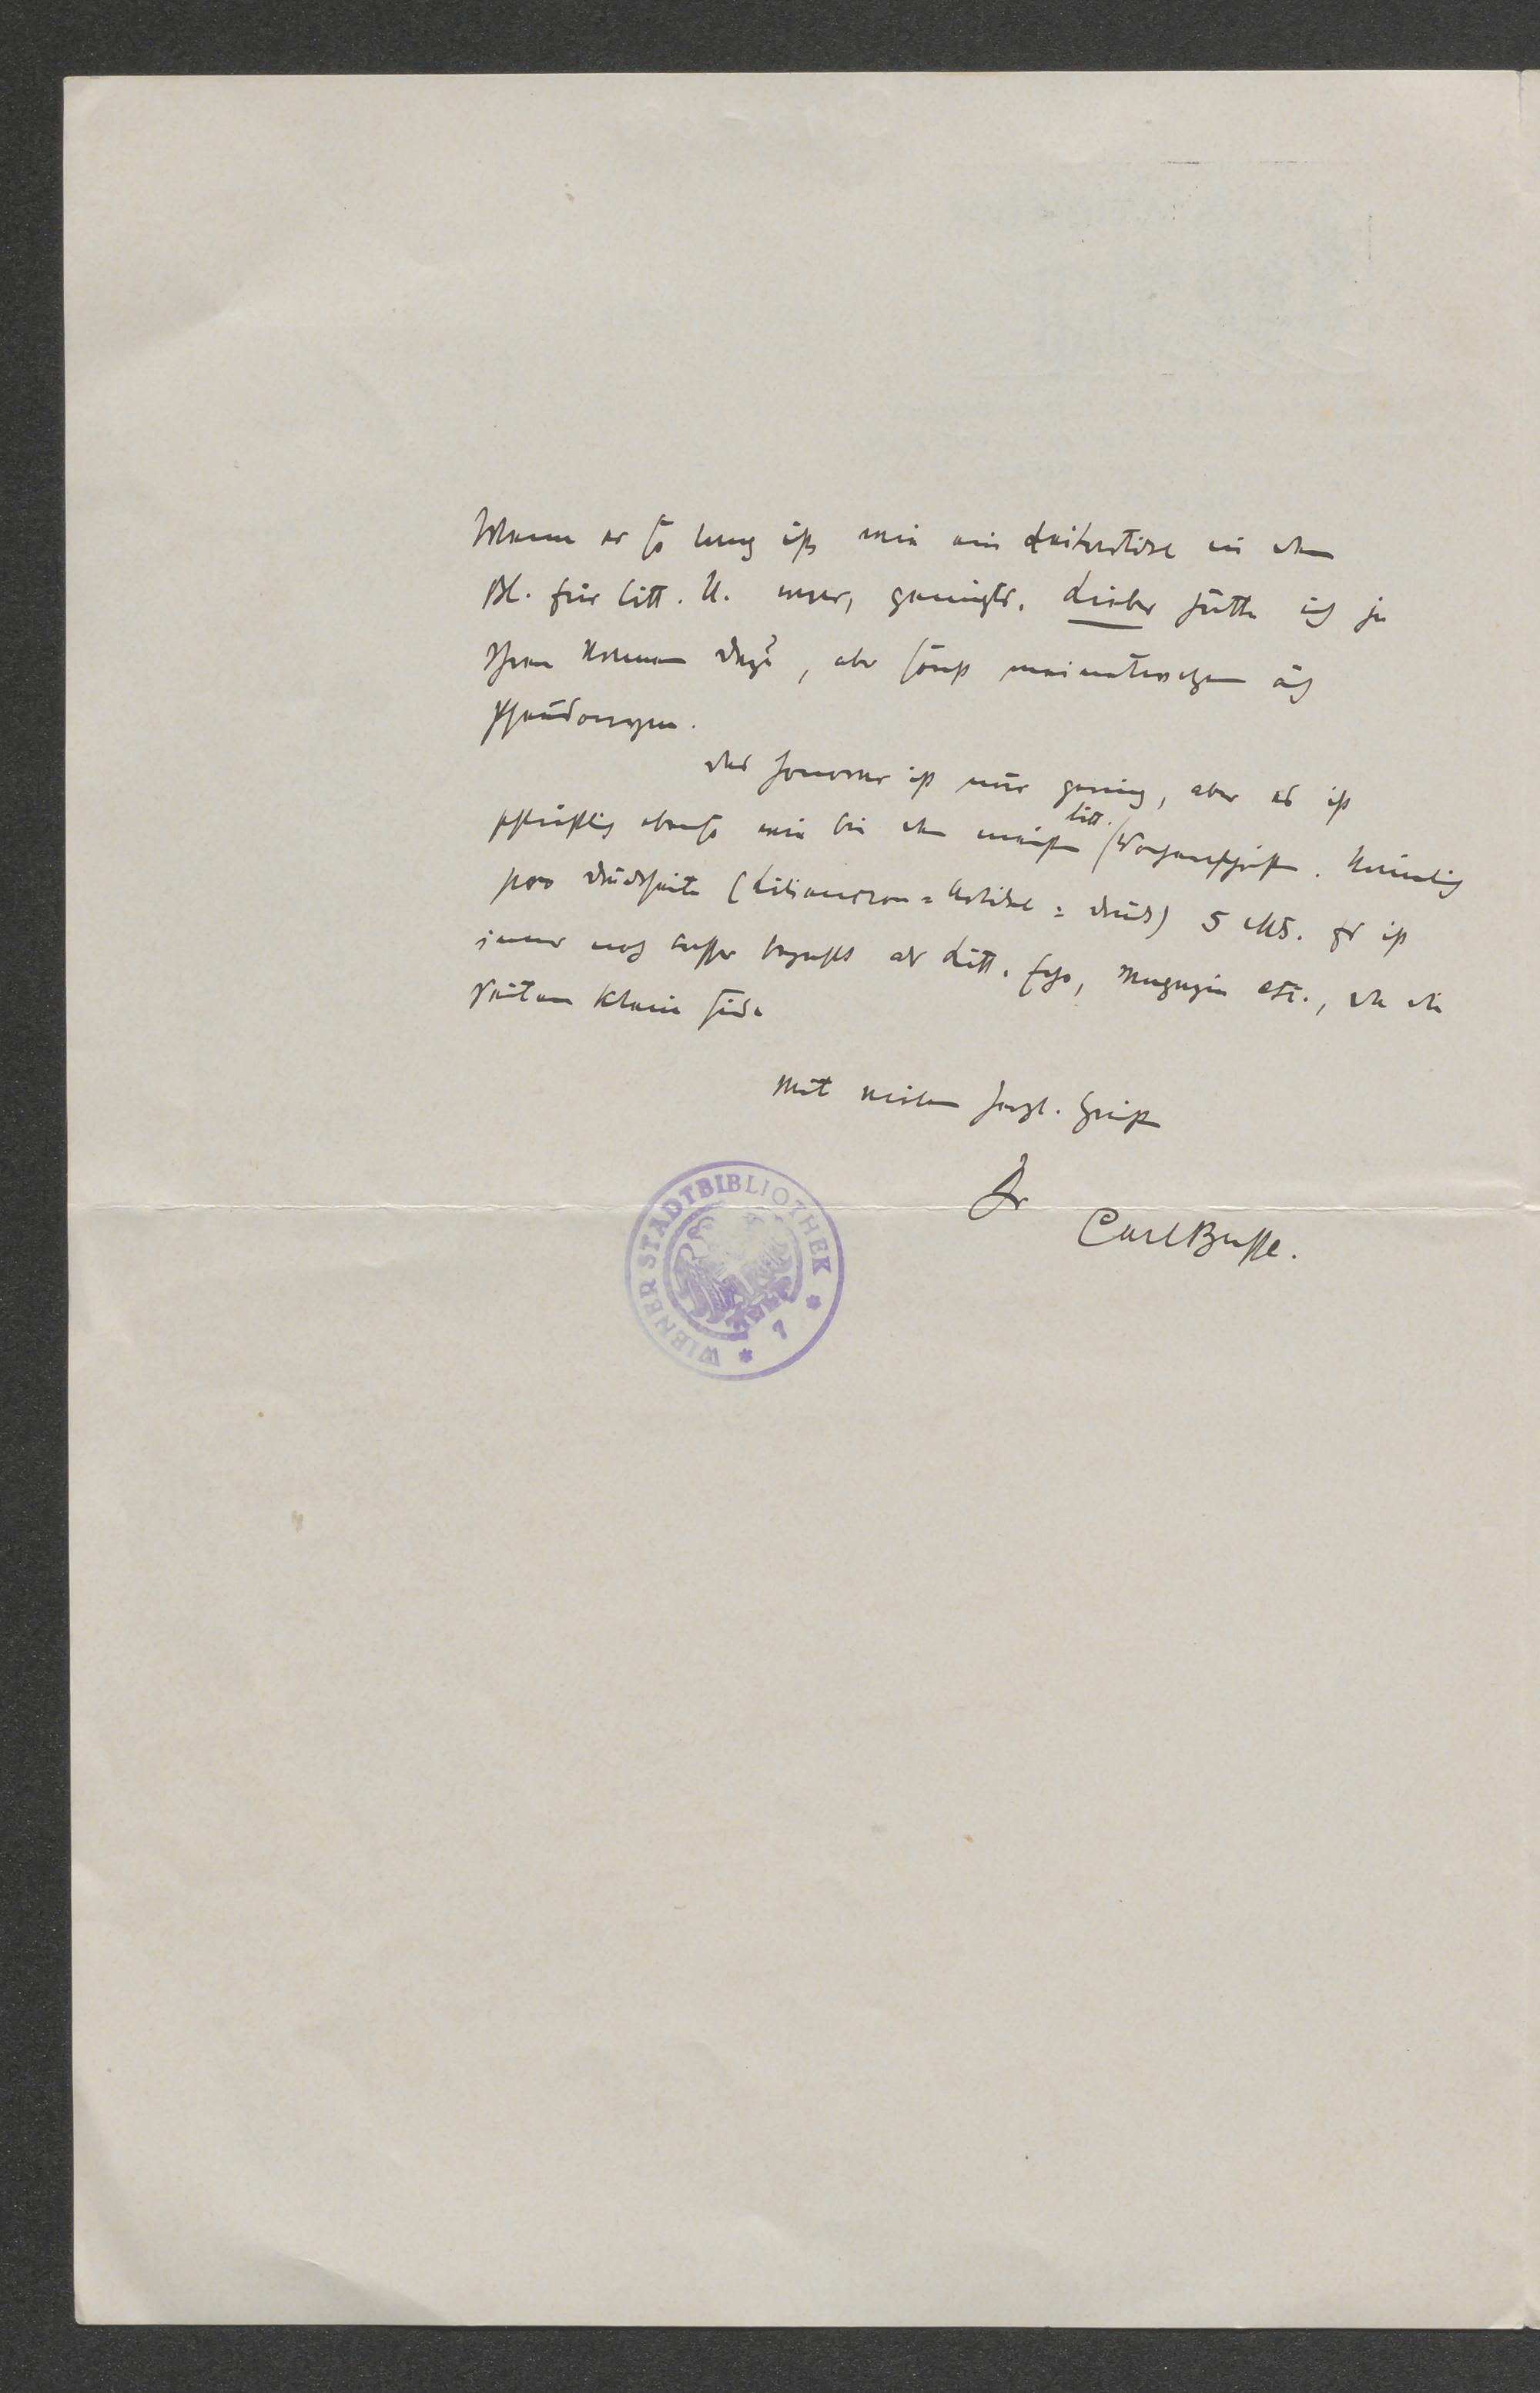 Wenn er so lang ist, wie ein Leitartikel in den
Bl. für litt. U. wars, genügts. Lieber hätte ich ja
Ihren Namen dazu, aber sonst meinetwegen auch
Pseudonym.
Das Honorar ist nur gering, aber es ist
schließlich ebenso wie bei den meisten litt. Wochenschriften. Nämlich
pro Druckseite (Liliencron-Artikel-Druck) 5 Mk. Es ist
immer noch besser bezahlt als Litt. Echo, Magazin etc., da die
Seiten klein sind.
Mit vielen herzl. Grüßen
Ihr
Carl Busse.
WIENER STADTBIBLIOTHEK * 7 *